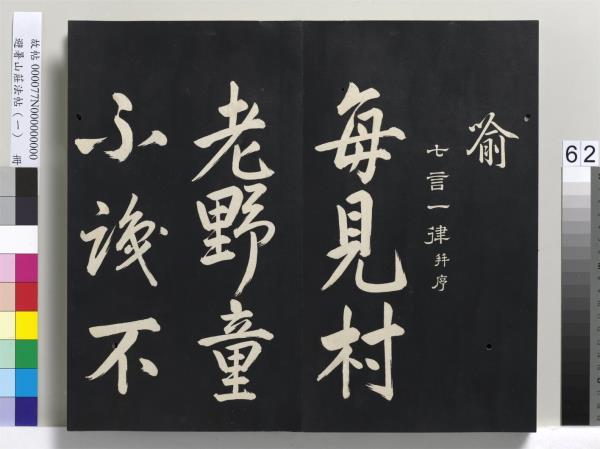 喻
七言一律并序
每見村
老野童
不識不
故帖 000077N000000000
避暑山莊法帖（一） 冊
62